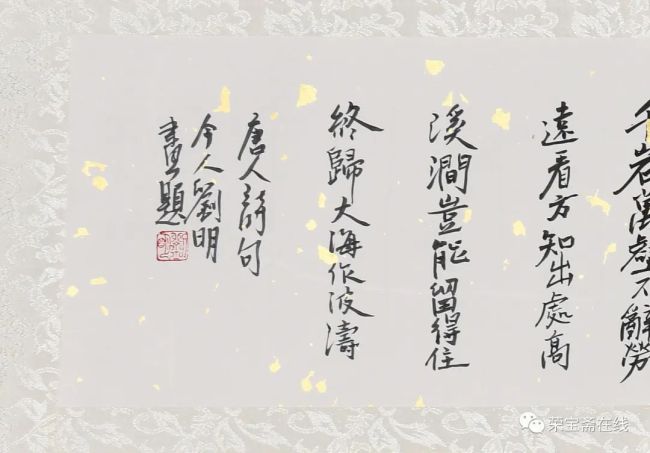 千岩萬壑不辭勞
遠看方知出處高
溪澗豈能留得住
終歸大海作波濤
唐人詩句
今人劉明
書題
荣宝斋在线